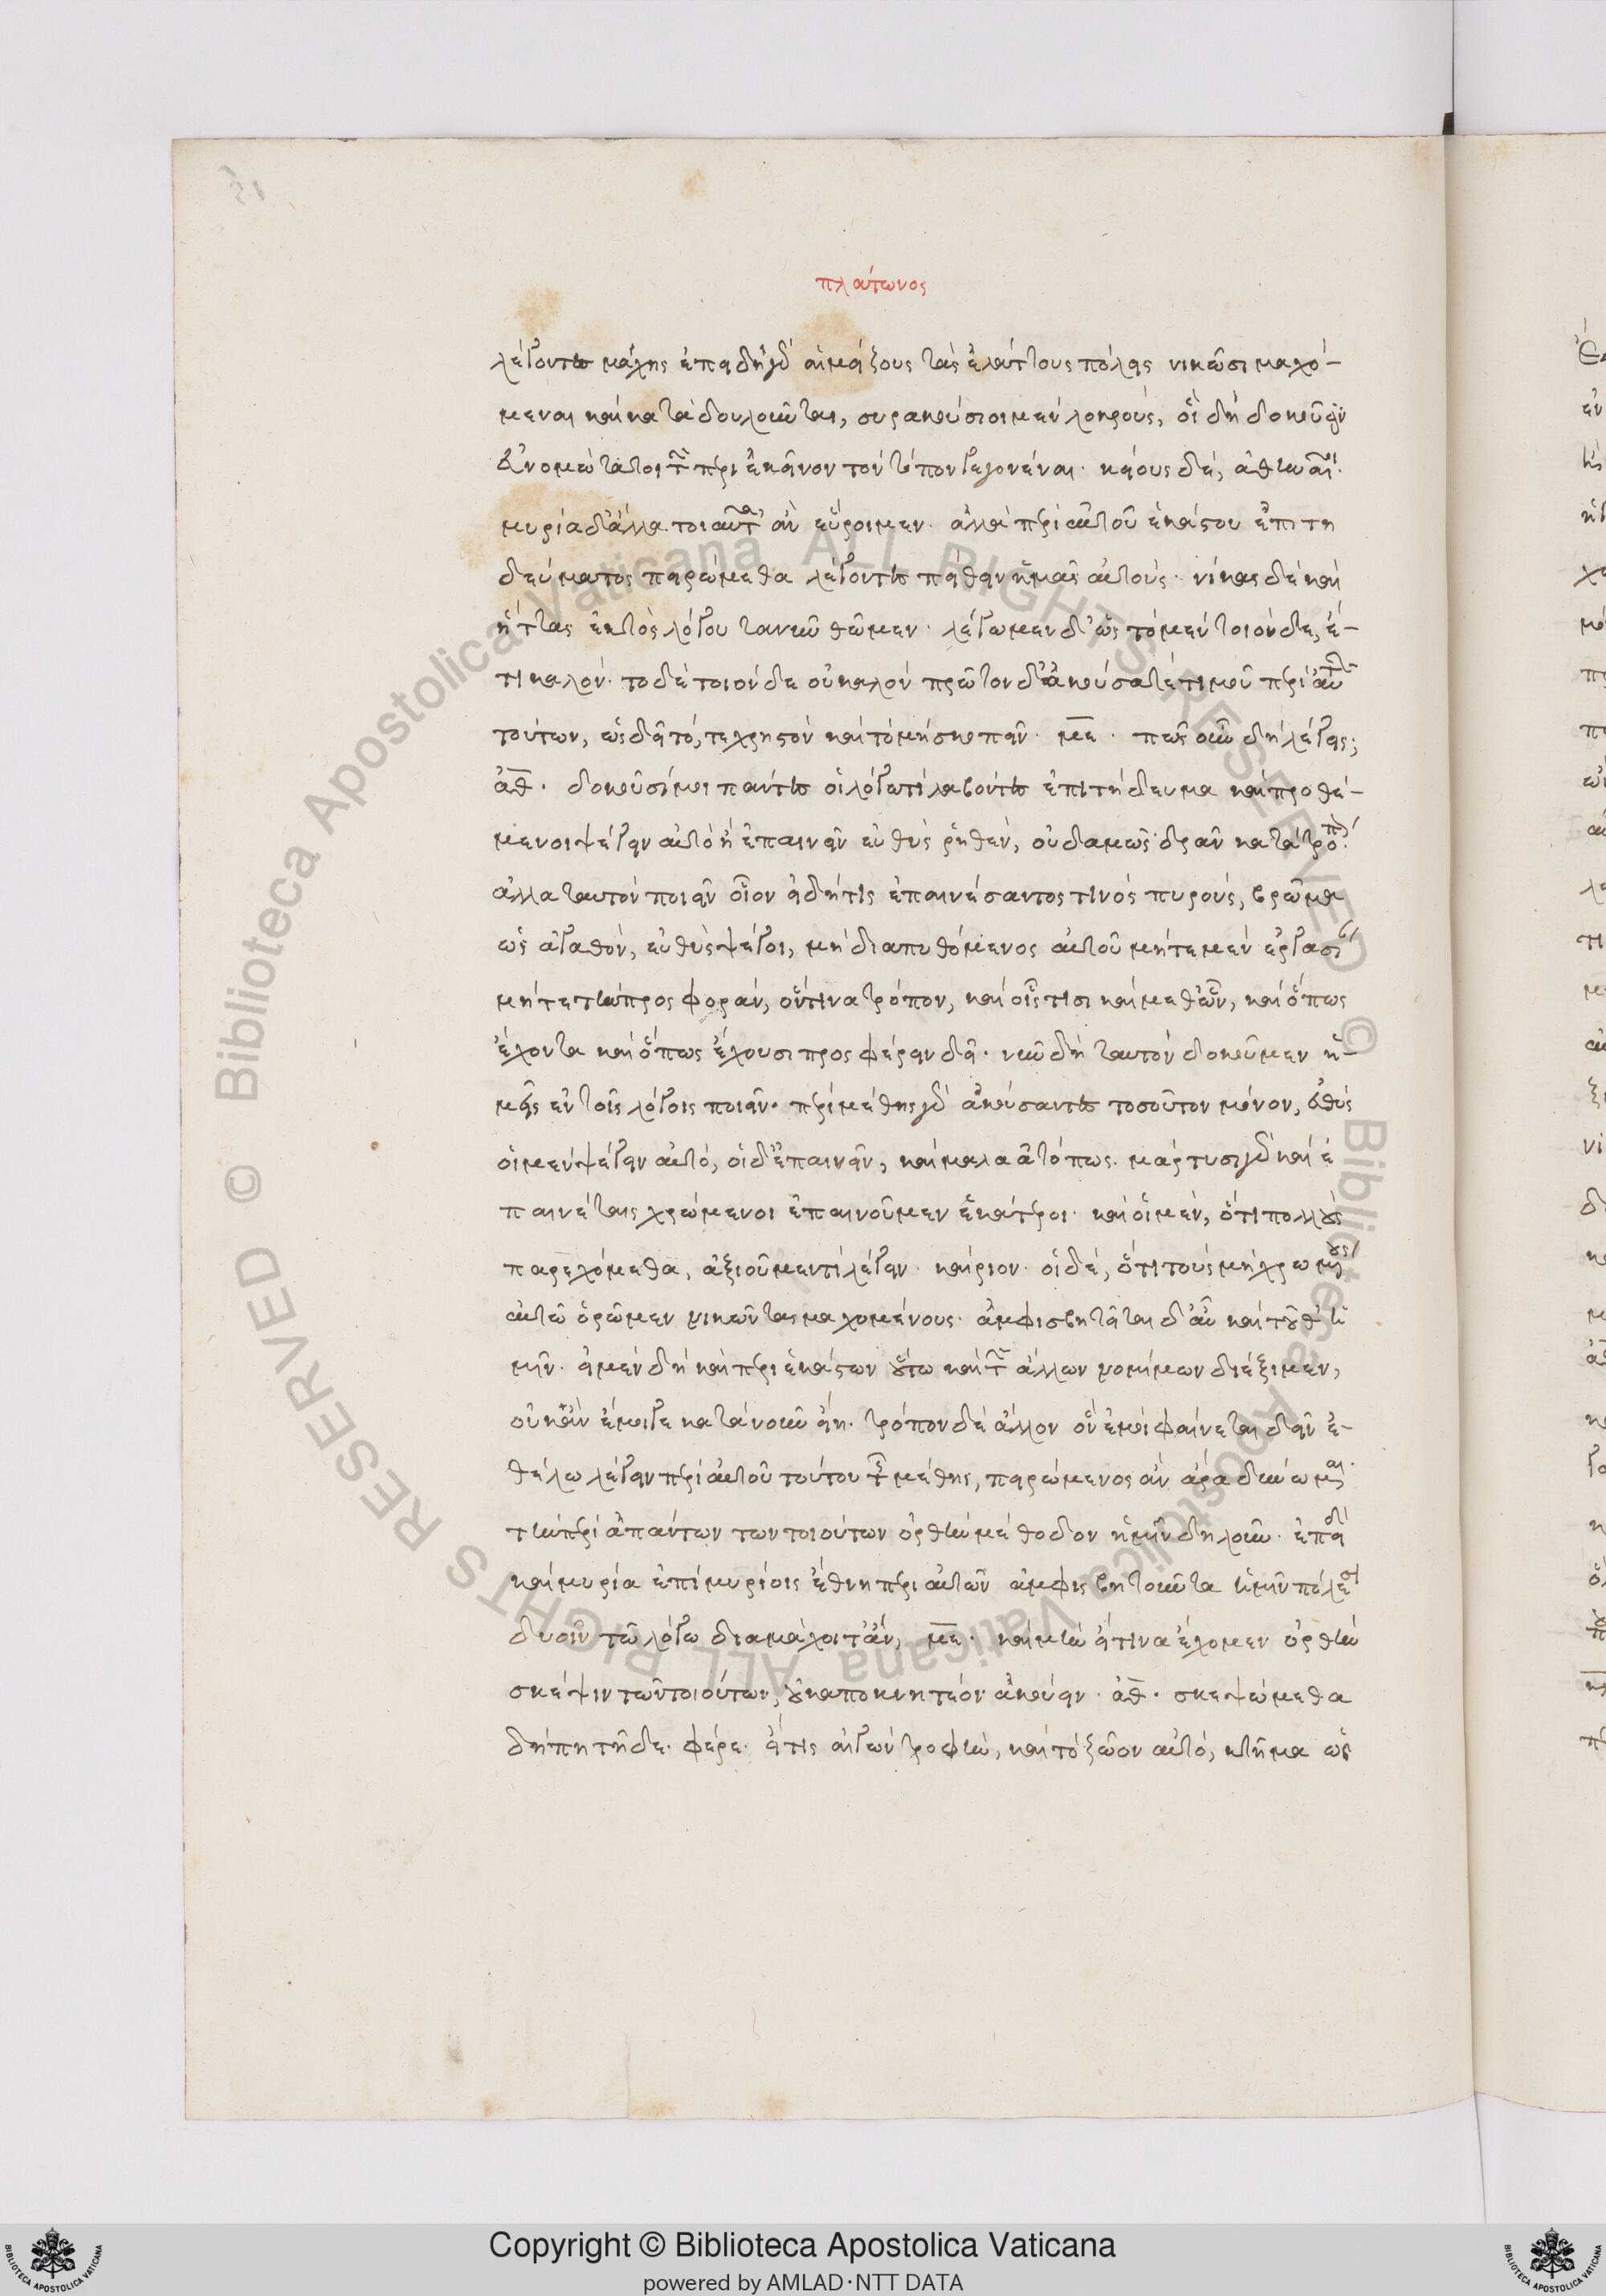 πλάτωνος
λέγοντες μάχης ἐπειδὴ γὰρ αἱ μείζους τὰς ἐλάττους πόλεις νικῶσι μαχό-
μεναι καὶ καταδουλοῦνται, συρακούσιοι μὲν λοκρούς, οἳ δὴ δοκοῦσιν
εὐνομώτατοι τῶν περὶ ἐκεῖνον τὸν τόπον γεγονέναι. κείους δὲ, ἀθηναῖοι.
μυρία δ' ἄλλα τοιαῦτ' ἂν εὕροιμεν. ἀλλὰ περὶ αὐτοῦ ἑκάστου ἐπιτη
δεύματος πειρώμεθα λέγοντες πείθειν ἡμᾶς αὐτούς. νίκας δὲ καὶ
ἥττας ἐκτὸς λόγου τανῦν θῶμεν. λέγωμεν δ' ὡς τὸ μὲν τοιόνδε, ἐ-
τι καλόν. τὸ δὲ τοιόνδε οὐ καλόν πρῶτον δ' ἀκούσατέ τι μοῦ περὶ αὐτῶν
τούτων, ὡς δεῖ τό, τε χρηστὸν καὶ τὸ μὴ σκοπεῖν. με. πῶς οὖν δὴ λέγεις;
ἀθ. δοκοῦσί μοι πάντες οἱ λόγω τι λαβόντες ἐπιτήδευμα καὶ προθέ-
μενοι ψέγειν αὐτὸ ἢ ἐπαινεῖν εὐθὺς ῥηθὲν, οὐδαμῶς δρᾶν κατὰ τρόπον.
ἀλλὰ ταυτὸν ποιεῖν οἷον εἰ δή τις ἐπαινέσαντος τινὸς πυρούς, βρῶμα
ὡς ἀγαθόν, εὐθὺς ψέγοι, μὴ διαπυθόμενος αὐτοῦ μήτε μὲν ἐργασίαν
μήτε τὴν προσφοράν, ὅντινα τρόπον, καὶ οἷς τισι καὶ μεθ' ὧν, καὶ ὅπως
ἔχοντα καὶ ὅπως ἔχουσι προσφέρειν δεῖ. νῦν δὴ ταυτὸν δοκοῦμεν ἡ-
μεῖς ἐν τοῖς λόγοις ποιεῖν. περὶ μέθης γὰρ ἀκούσαντες τοσοῦτον μόνον, εὐθὺς
οἱ μὲν ψέγειν αὐτό, οἱ δ' ἐπαινεῖν, καὶ μάλα ἀτόπως. μάρτυσι γὰρ καὶ ἐ
παινέταις χρώμενοι ἐπαινοῦμεν ἑκάτεροι. καὶ οἱ μὲν, ὅτι πολλοὺς
παρεχόμεθα, ἀξιοῦμεν τὶ λέγειν. καίριον. οἱ δὲ, ὅτι τοὺς μὴ χρωμένους
αὐτῷ ὁρῶμεν νικῶντας μαχομένους. ἀμφισβητεῖται δ' αὖ καὶ τοῦθ' ἡ
μῖν. εἰ μὲν δὴ καὶ περὶ ἑκάστων οὕτω καὶ τῶν ἄλλων νομίμων διέξιμεν,
οὐκ ἂν ἔμοιγε κατὰ νοῦν εἴη. τρόπον δὲ ἄλλον ὃν ἐμοὶ φαίνεται δεῖν ἐ-
θέλω λέγειν περὶ αὐτοῦ τούτου τῆς μέθης, πειρώμενος ἂν ἄρα δύνωμαι.
τὴν περὶ ἁπάντων τῶν τοιούτων ὀρθὴν μέθοδον ἡμῖν δηλοῦν. ἐπειδὴ
καὶ μυρία ἐπὶ μυρίοις ἔθνη περὶ αὐτῶν ἀμφισβητοῦντα ὑμῖν πόλεσι
δυοῖν τῷ λόγω διαμάχοιτ' ἄν, με. καὶ μὴν εἴ τινα ἔχομεν ὀρθὴν
σκέψιν τῶν τοιούτων, οὐκ ἀποκνητέον ἀκούειν. ἀθ. σκεψώμεθα
δή πη τῇδε. φέρε. εἴ τις αἰγῶν τροφὴν, καὶ τὸ ζῶον αὐτό, κτῆμα ὡς